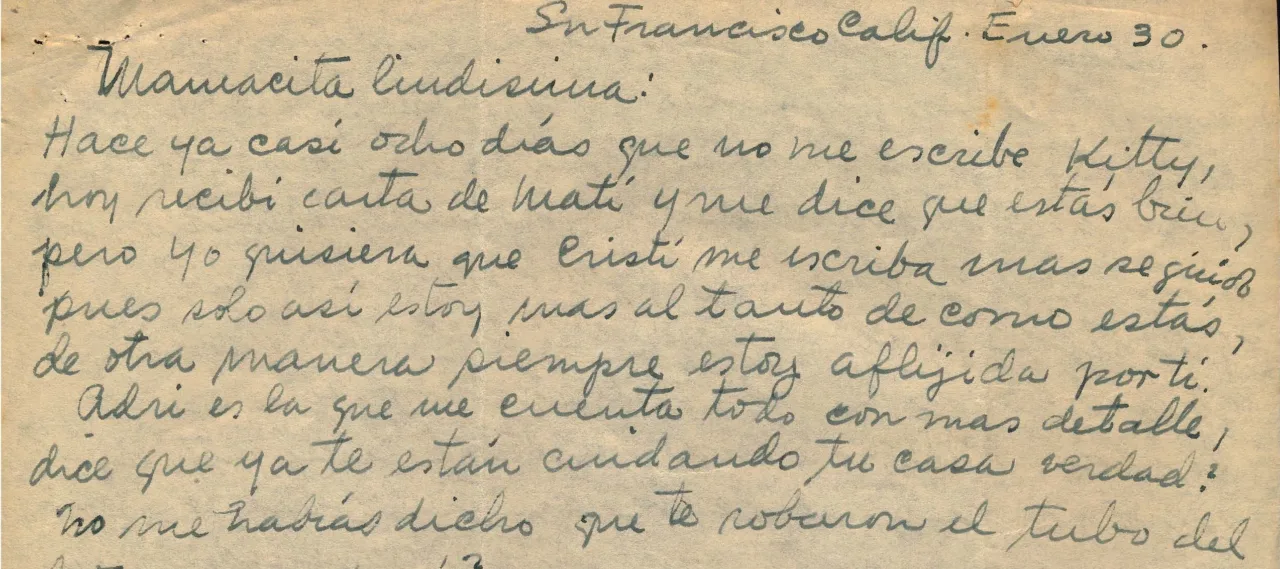 Sn Francisco Calif. Enero 30.
Mamacita lindisima:
Hace ya casi ocho días que no me escribe Kitty,
hoy recibí carta de Mati y me dice que estás bien,
pero yo quisiera que Cristi me escriba mas seguido
pues solo así estoy mas al tanto de como estás,
de otra manera siempre estoy aflijida por ti.
Adri es la que me cuenta todo con mas detalle,
dice que ya te están cuidando tu casa verdad?
No me habías dicho que te robaron el tubo del